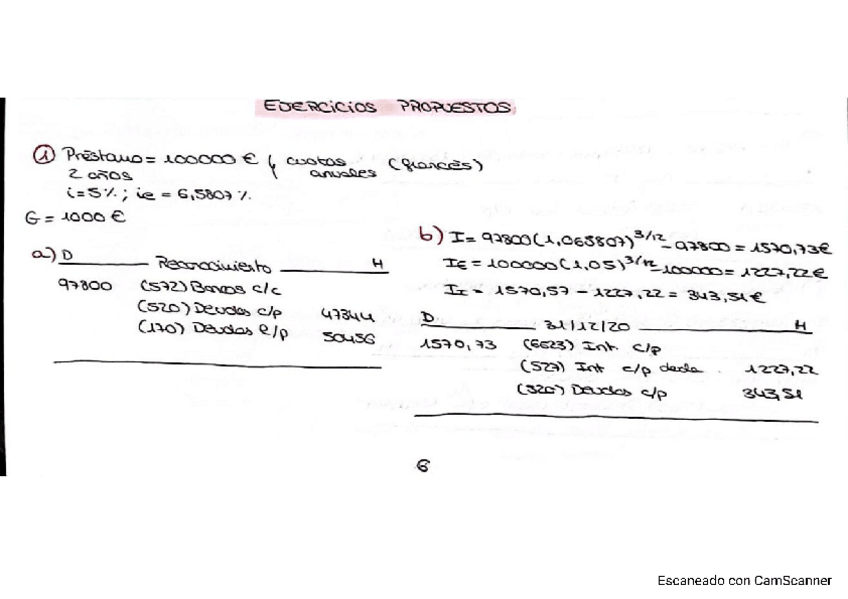 EJERCICIOS PROPUESTOS
① Préstamo = 100000 € y cuotas anuales (francés)
2 años
i = 5%; ie = 6,5807 %
G = 1000 €
a) D Reconocimiento H
97800 (572) Bancos c/c
(520) Deudas c/p 47344
(170) Deudas l/p 50456
b) I = 97800(1,065807)^3/12 - 97800 = 1570,73€
IE = 100000(1,05)^3/12 - 100000 = 1227,22€
II = 1570,57 - 1227,22 = 343,51€
D 31/12/20 H
1570,73 (6623) Int. c/p
(527) Int c/p deuda 1227,22
(520) Deudas c/p 343,51
6
Escaneado con CamScanner